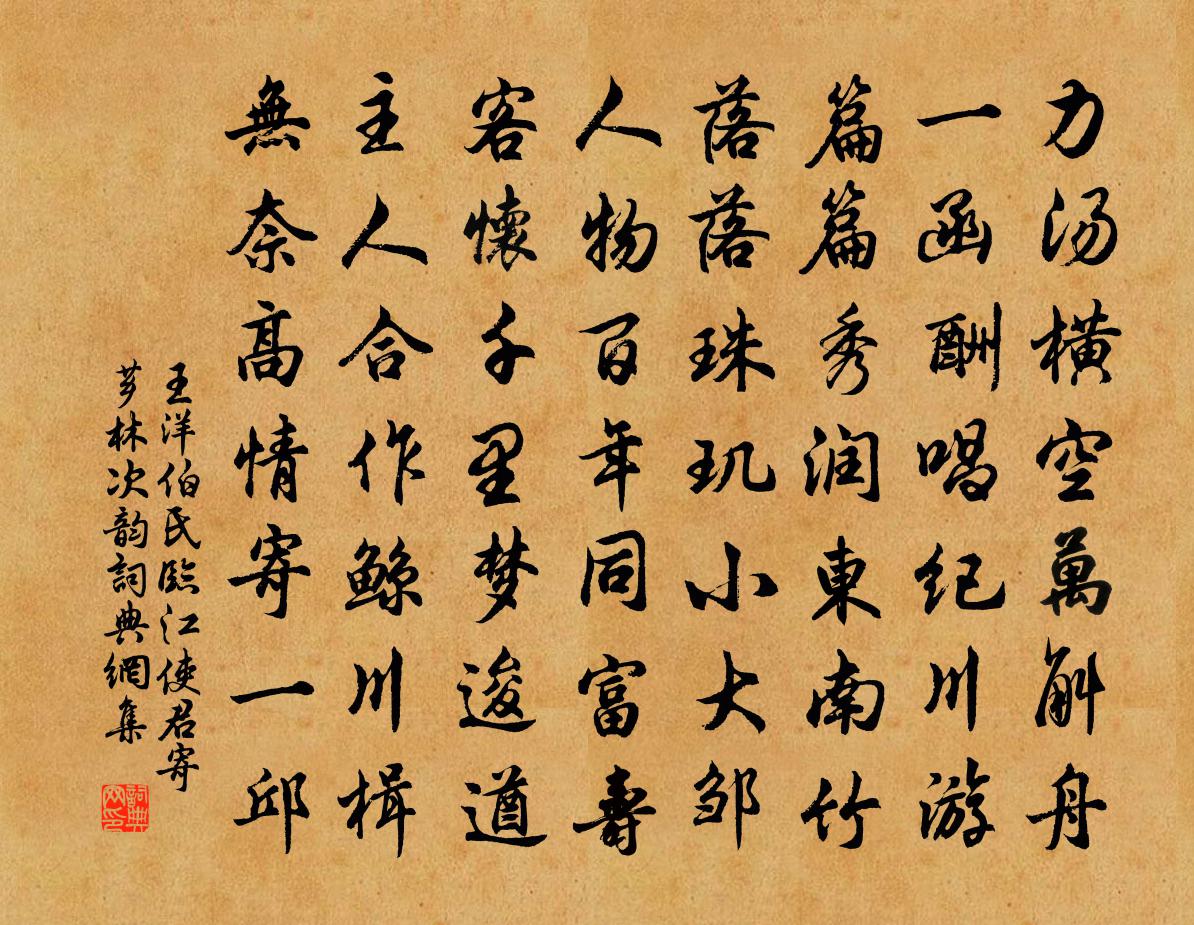 力汤横空萬斛舟
一函酬唱纪川游
篇篇秀润東南竹
落落珠玑小大邹
人物百年同富壽
客懷千里梦逡遒
主人合作鲸川楫
無奈高情寄一邱
王洋伯氏臨江使君寄
芗林次韵詞典網集
詞典
网印